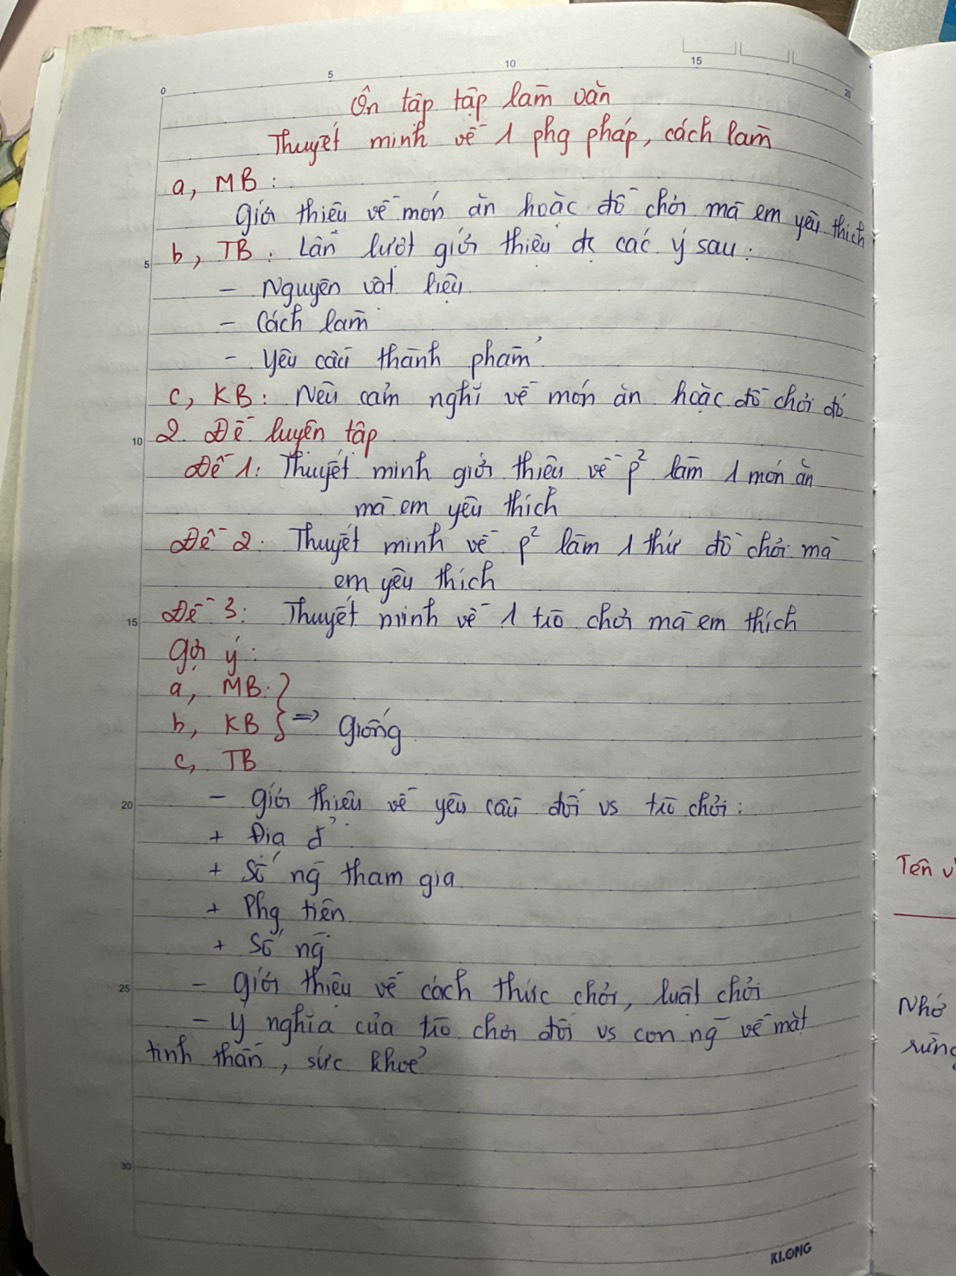 0 5 10 15 20
Ôn tập tập làm văn
Thuyết minh về 1 phg pháp, cách làm
a, MB:
giới thiệu về món ăn hoặc đồ chơi mà em yêu thích
b, TB: Lần lượt giới thiệu đc các ý sau:
5
- Nguyên vật liệu
- Cách làm
- Yêu cầu thành phẩm
c, KB: Nêu cảm nghĩ về món ăn hoặc đồ chơi đó
10 2. Đề luyện tập
Đề 1: Thuyết minh giới thiệu về p² làm 1 món ăn
mà em yêu thích
Đề 2: Thuyết minh về p² làm 1 thứ đồ chơi mà
em yêu thích
15 Đề 3: Thuyết minh về 1 trò chơi mà em thích
gợi ý:
a, MB:
b, KB } => giống
c, TB
20 - giới thiệu về yêu cầu đối vs trò chơi:
+ Địa đ'
+ Số ng tham gia
+ Phg tiện
+ Số ng
25 - giới thiệu về cách thức chơi, luật chơi
- Ý nghĩa của trò chơi đối vs con ng về mặt
tinh thần, sức khoẻ
30
KLONG
Tên
Nhớ
rừng